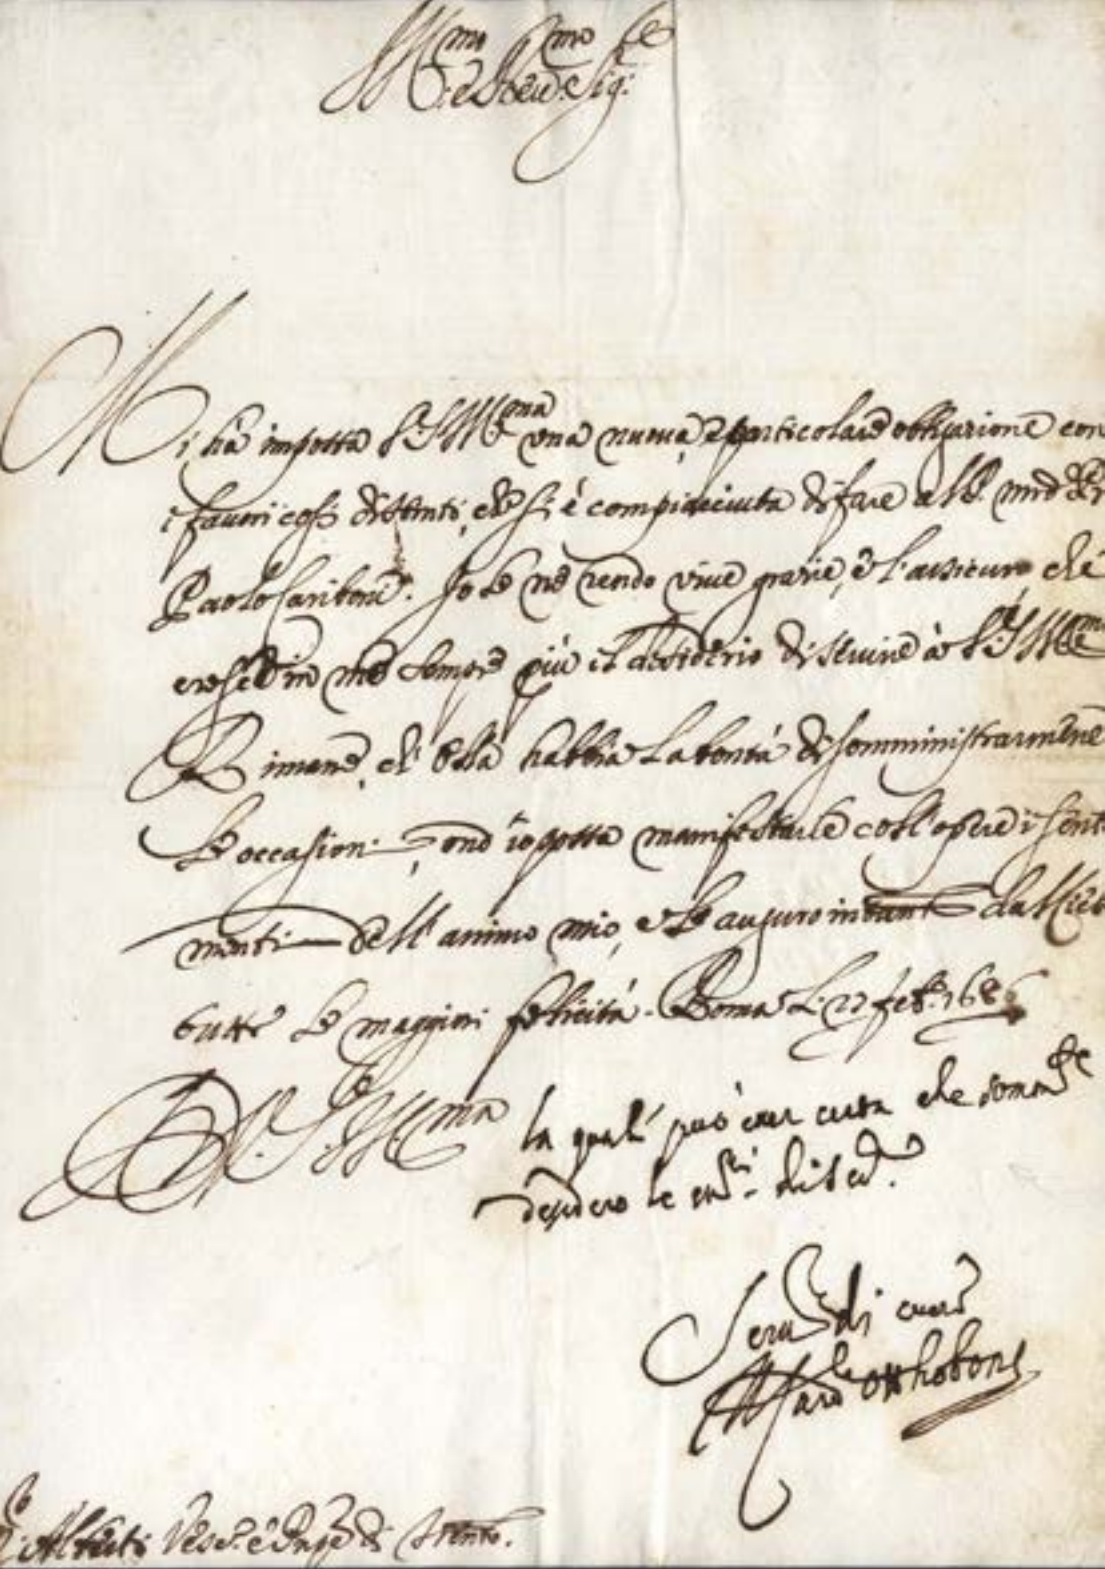 Ill.mo e Rev.mo Sig.re
Mi hà imposta V. S. Ill.ma una nuova, e particolare obligazione con
i favori così distinti, che si è compiaciuta di fare al P. mro
Paolo Cariboni. Io le ne rendo vive grazie, e l'assicuro che
cresce in me sempre più il desiderio di servire à V. S. Ill.ma
Rimane, ch'ella habbia la bontà di somministrarmene
le occasioni, ond'io possa manifestarle coll'opere i senti
menti dell'animo mio, e le auguro intanto dal Cielo
tutte le maggiori felicità. Roma li 27 feb.o 1686
D V. S. Ill.ma la qual può esser certa che somam.te
desidero le di ser.
Serv.e di cuore
Il Card.le Otthoboni
Alberti Vesc.o e Prnpe di Trento.